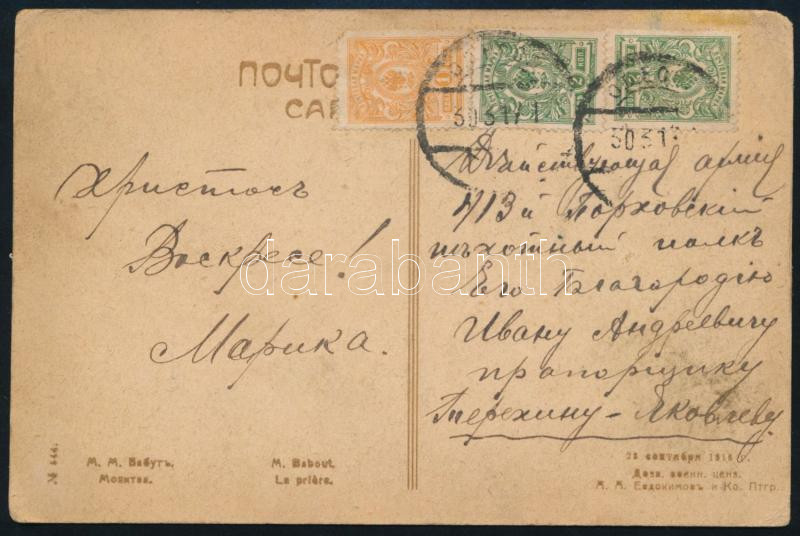 ПОЧТО
CA
30 3 17
30 3 17
Христосъ
Воскресе!
Марика.
Дѣйствующая армія
413й Порховскій
пѣхотный полкъ
Его Благородію
Ивану Андреевичу
прапорщику
Терехину-Яковлеву
darabanth
№ 444.
М. М. Бабутъ.
Молитва.
M. Babout.
La prière.
сентября 1916 г.
Дозв. военн. ценз.
А. М. Евдокимовъ и Ко. Птгр.